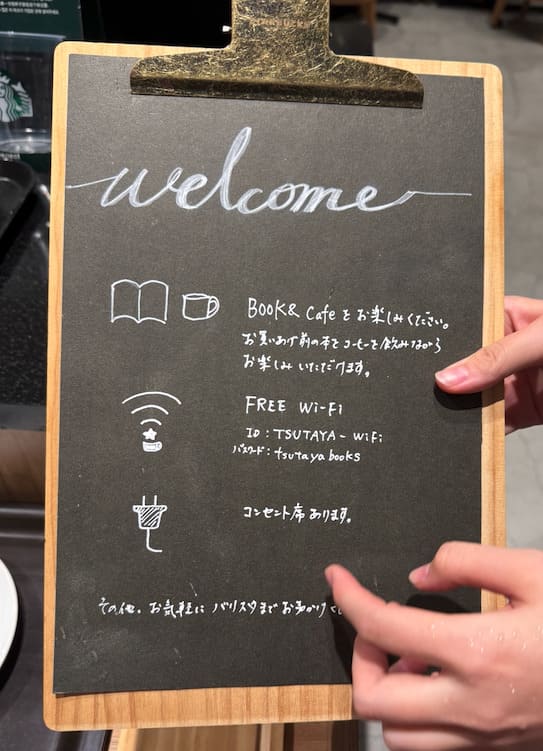 STARBUCKS
welcome
BOOK& Cafe をお楽しみください。
お買いあげ前の本をコーヒーを飲みながら
お楽しみいただけます。
FREE Wi-Fi
ID : TSUTAYA - WiFi
パスワード : tsutaya books
コンセント席あります。
その他、お気軽に バリスタまで お